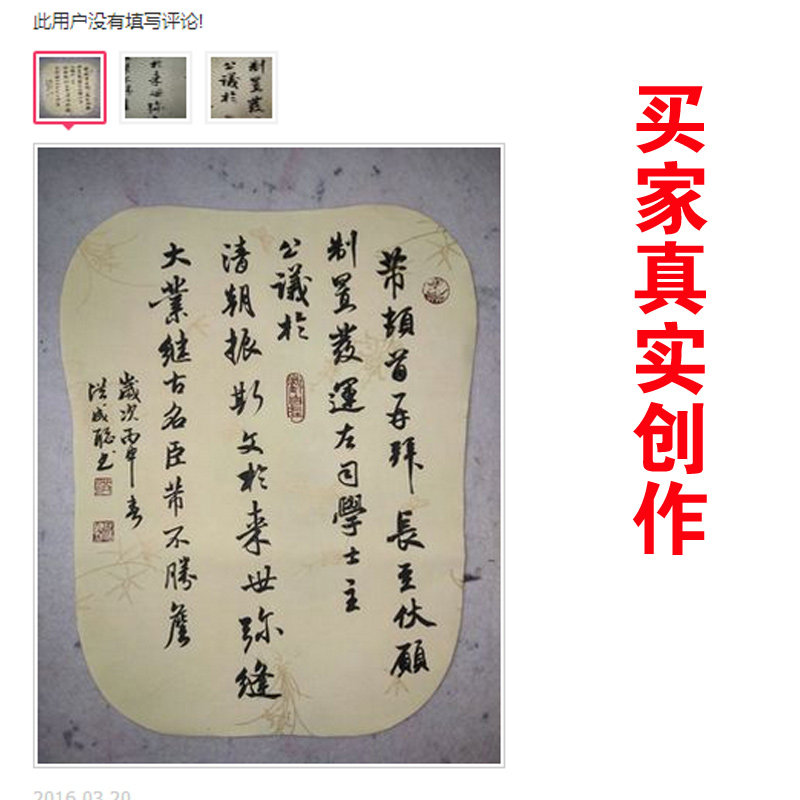 此用户没有填写评论!
芾頓首再拜 長至伏願
制置發運左司學士主
公議於
清朝振斯文於来世弥縫
大業继古名臣芾不勝詹
歲次丙申春
洪成聪书
买家真实创作
2016.03.20